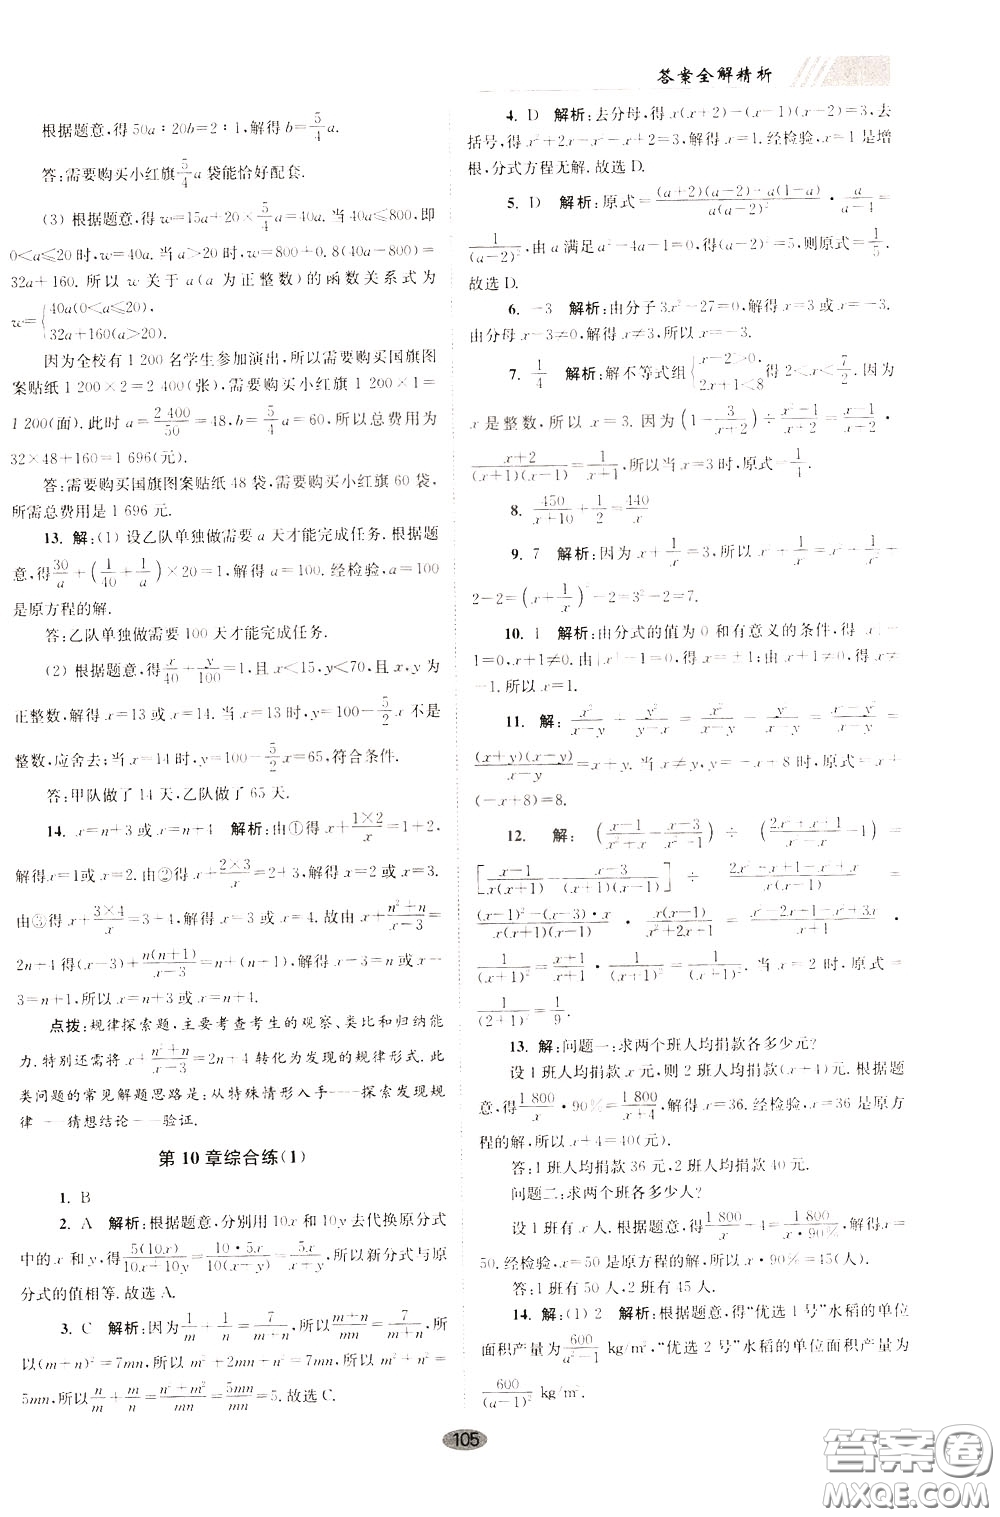 答案全解精析
根据题意,得50a∶20b=2∶1,解得b=5/4 a.
答:需要购买小红旗5/4 a袋能恰好配套.
(3) 根据题意,得w=15a+20×5/4 a=40a. 当40a≤800,即
0<a≤20时,w=40a. 当a>20时,w=800+0.8(40a-800)=
32a+160. 所以w关于a(a为正整数)的函数关系式为
w={40a(0<a≤20),
32a+160(a>20).
因为全校有1 200名学生参加演出,所以需要购买国旗图
案贴纸1 200×2=2 400(张),需要购买小红旗1 200×1=
1 200(面). 此时a=2 400/50=48,b=5/4 a=60,所以总费用为
32×48+160=1 696(元).
答:需要购买国旗图案贴纸48袋,购买小红旗60袋,
所需总费用是1 696元.
13. 解:(1) 设乙队单独做需要a天才能完成任务. 根据题
意,得30/a+(1/40+1/a)×20=1,解得a=100. 经检验,a=100
是原方程的解.
答:乙队单独做需要100天才能完成任务.
(2) 根据题意,得x/40+y/100=1,且x<15,y<70,且x,y为
正整数,解得x=13或x=14. 当x=13时,y=100-5/2 x不是
整数,应舍去;当x=14时,y=100-5/2 x=65,符合条件.
答:甲队做了14天,乙队做了65天.
14. x=n+3或x=n+4 解析:由①得x+1×2/x=1+2,
解得x=1或x=2. 由②得x+2×3/x=2+3,解得x=2或x=3.
由③得x+3×4/x=3+4,解得x=3或x=4. 故由x+n²+n/x-3=
2n+4得(x-3)+n(n+1)/x-3=n+(n+1),解得x-3=n或x-
3=n+1,所以x=n+3或x=n+4.
点拨:规律探索题,主要考查考生的观察、类比和归纳能
力. 特别还需将x+n²+n/x-3=2n+4转化为发现的规律形式. 此
类问题的常见解题思路是:从特殊情形入手——探索发现规
律——猜想结论——验证.
第10章综合练(1)
1. B
2. A 解析:根据题意,分别用10x和10y去代换原分式
中的x和y,得5(10x)/10x+10y=10·5x/10(x+y)=5x/x+y,所以新分式与原
分式的值相等. 故选A.
3. C 解析:因为1/m+1/n=7/m+n,所以m+n/mn=7/m+n,所
以(m+n)²=7mn,所以m²+2mn+n²=7mn,所以m²+n²=
5mn,所以n/m+m/n=n²+m²/mn=5mn/mn=5. 故选C.
4. D 解析:去分母,得x(x+2)-(x-1)(x+2)=3,去
括号,得x²+2x-x²-x+2=3,解得x=1. 经检验,x=1是增
根,分式方程无解. 故选D.
5. D 解析:原式=(a+2)(a-2)-a(1-a)/a(a-2)²·a/a-4=
1/(a-2)²,由a满足a²-4a-1=0,得(a-2)²=5,则原式=1/5.
故选D.
6. -3 解析:由分子3x²-27=0,解得x=3或x=-3.
由分母x-3≠0,解得x≠3,所以x=-3.
7. 1/4 解析:解不等式组{x-2>0,
2x+1<8得2<x<7/2. 因为
x是整数,所以x=3. 因为(1-3/x+2)÷x²-1/x+2=x-1/x+2·
x+2/(x+1)(x-1)=1/x+1,所以当x=3时,原式=1/4.
8. 450/x+10+1/2=440/x
9. 7 解析:因为x+1/x=3,所以x²+1/x²=x²+1/x²+
2-2=(x+1/x)²-2=3²-2=7.
10. 1 解析:由分式的值为0和有意义的条件,得|x|-
1=0,x+1≠0. 由|x|-1=0,得x=±1;由x+1≠0,得x≠
-1. 所以x=1.
11. 解:x²/x-y+y²/y-x=x²/x-y-y²/x-y=x²-y²/x-y=
(x+y)(x-y)/x-y=x+y. 当x≠y,y=-x+8时,原式=x+
(-x+8)=8.
12. 解:(x-1/x²+x-x-3/x²-1)÷(2x²+x+1/x²-x-1)=
[x-1/x(x+1)-x-3/(x+1)(x-1)]÷2x²+x+1-x²+x/x²-x=
(x-1)²-(x-3)·x/x(x+1)(x-1)·x(x-1)/x²+2x+1=x²-2x+1-x²+3x/x+1·
1/(x+1)²=x+1/x+1·1/(x+1)²=1/(x+1)². 当x=2时,原式=
1/(2+1)²=1/9.
13. 解:问题一:求两个班人均捐款各多少元?
设1班人均捐款x元,则2班人均捐款(x+4)元. 根据题
意,得1 800/x·90%=1 800/x+4,解得x=36. 经检验,x=36是原方
程的解,所以x+4=40(元).
答:1班人均捐款36元,2班人均捐款40元.
问题二:求两个班各多少人?
设1班有x人. 根据题意,得1 800/x+4=1 800/x·90%,解得x=
50. 经检验,x=50是原方程的解,所以x·90%=45(人).
答:1班有50人,2班有45人.
14. 解:(1) 2 解析:根据题意,得“优选1号”水稻的单位
面积产量为600/a²-1 kg/m²,“优选2号”水稻的单位面积产量为
600/(a-1)² kg/m².
105
答案圈
MXQE.COM